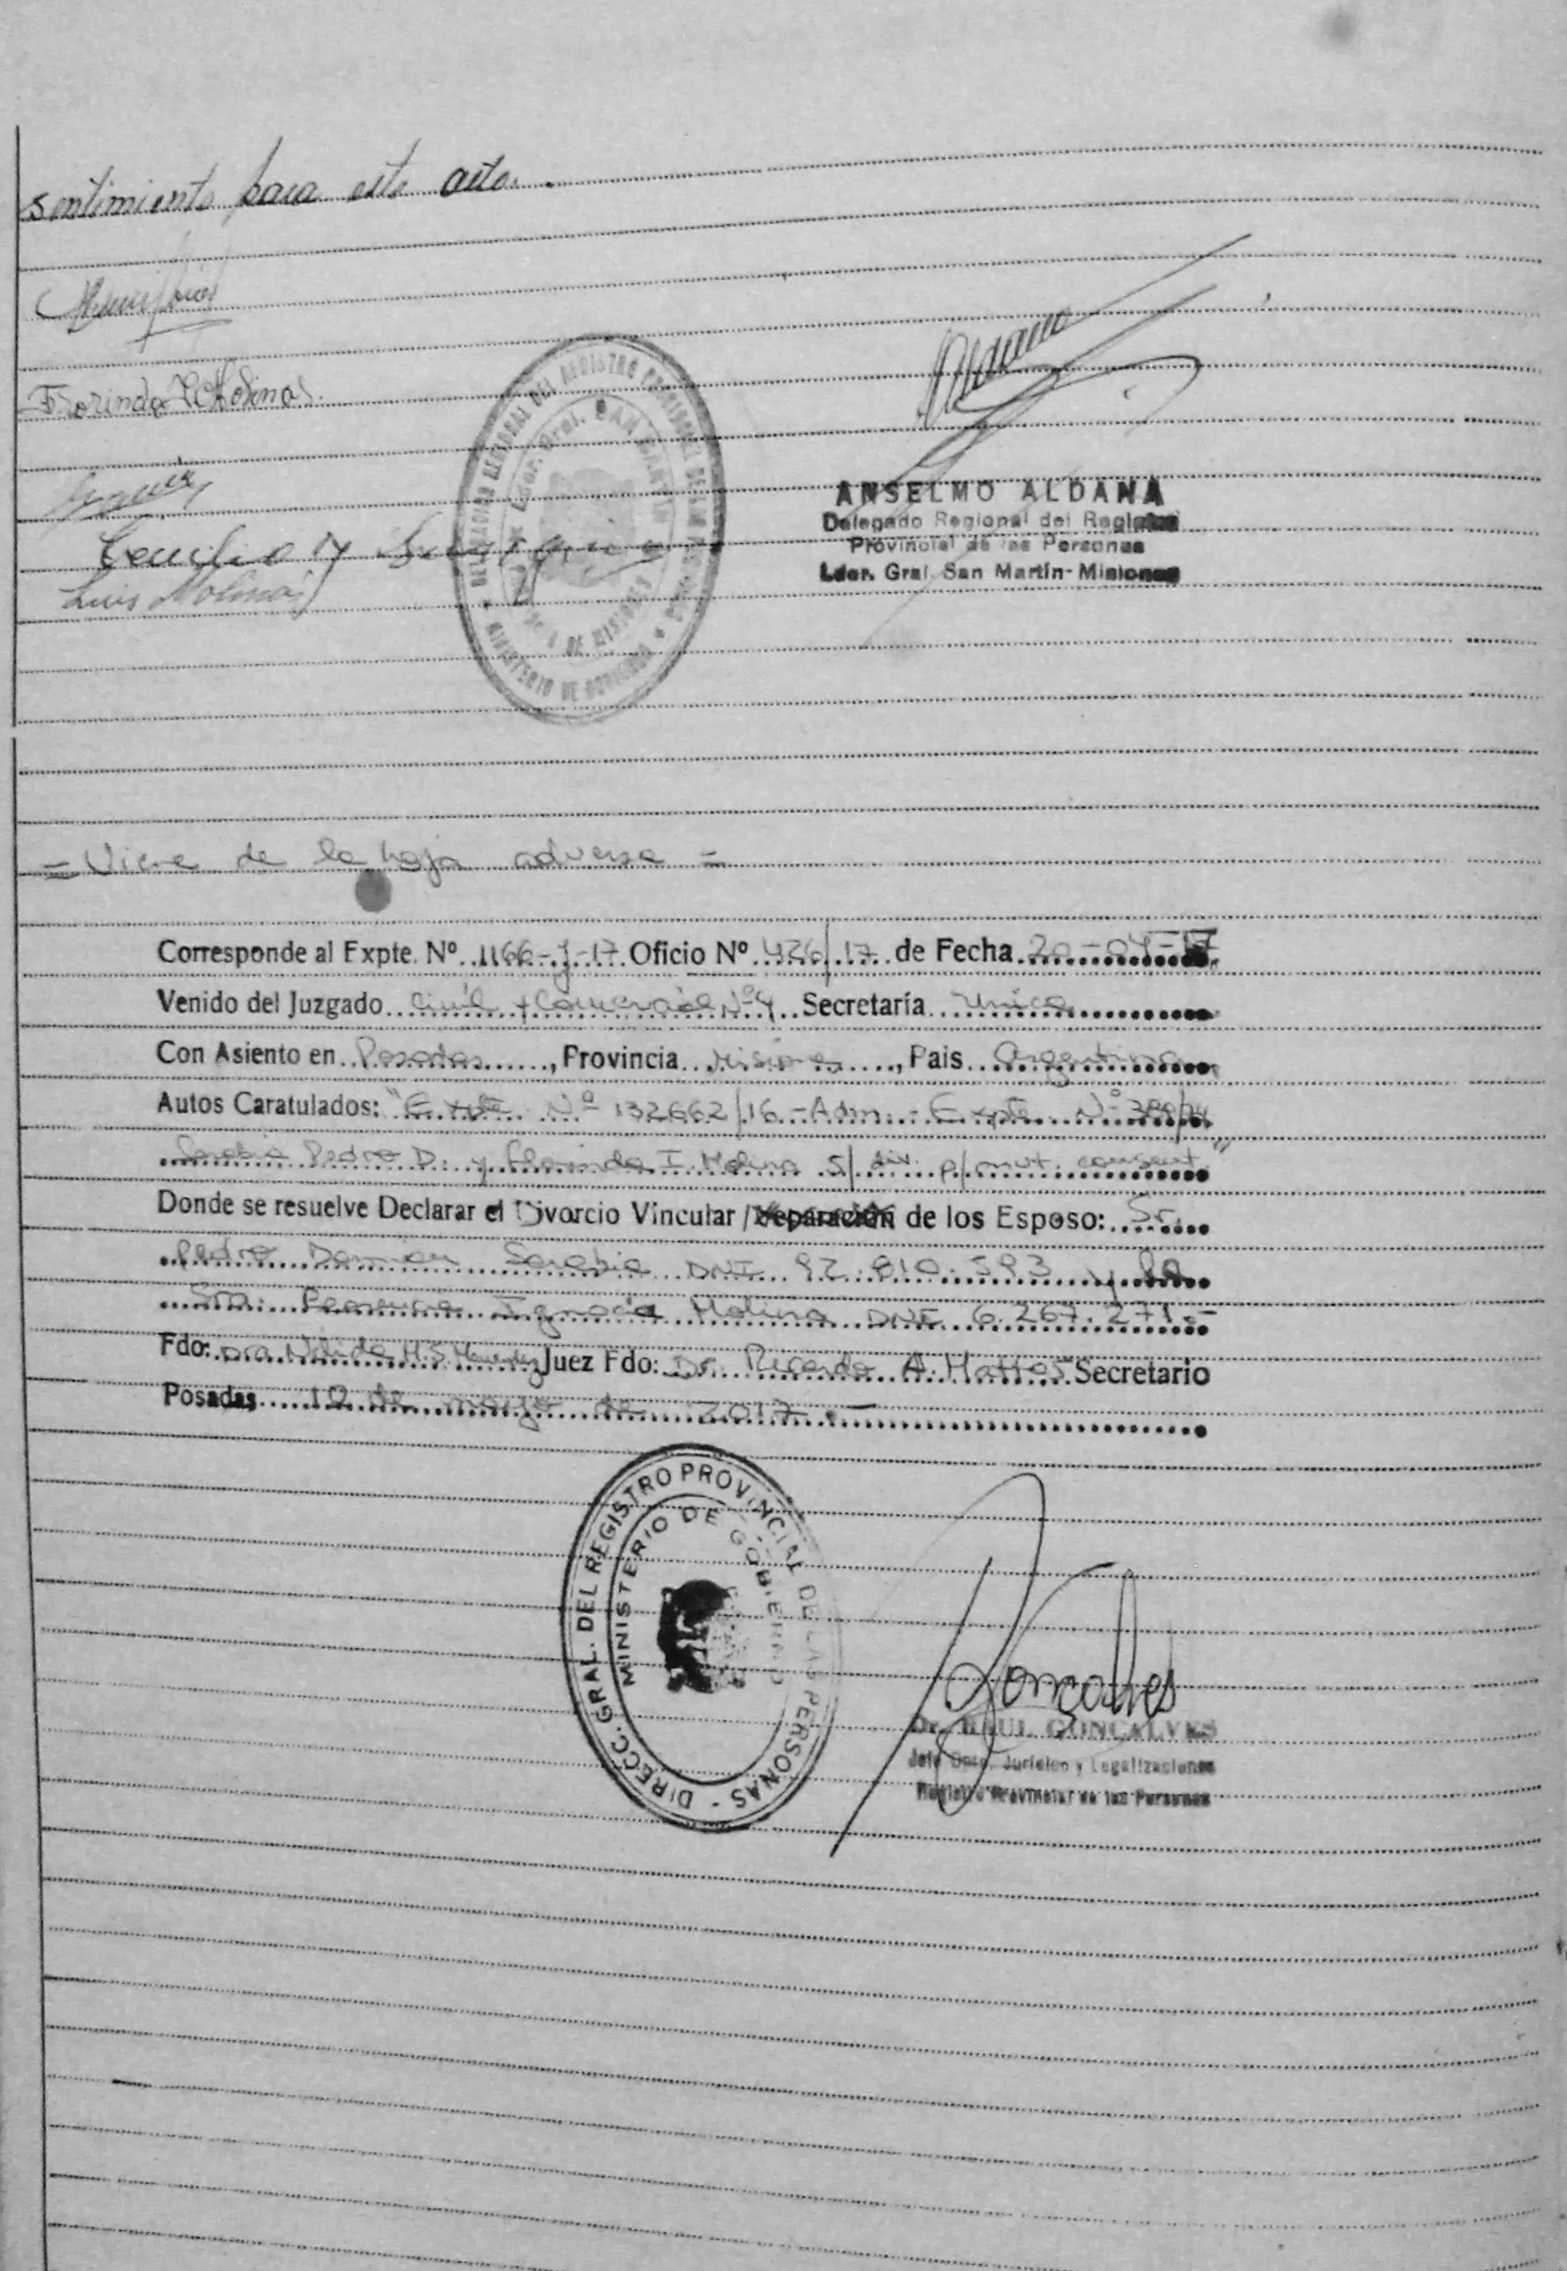 sentimiento para este acto.
Luis Molinas
ANSELMO ALDANA
Delegado Regional del Registro
Provincial de las Personas
Lder. Gral. San Martín-Misiones
DELEGACION REGIONAL DEL REGISTRO PROVINCIAL DE LAS PERSONAS
MINISTERIO DE GOBIERNO
Lder. Gral. SAN MARTIN
DE MISIONES
= Viene de la hoja adversa =
Corresponde al Expte. Nº 1166-J-17 Oficio Nº 426/17 de Fecha 20-04-17
Venido del Juzgado Civil y Comercial Nº 4 Secretaría Unica
Con Asiento en Posadas, Provincia Misiones, Pais Argentina
Autos Caratulados: "Expte Nº 132662/16 -Adm.- Expte. Nº
Sarabia Pedro D. y Florinda I. Molina S/ div. p/ mut. consent."
Donde se resuelve Declarar el Divorcio Vincular / Separación de los Esposo: Sr.
Pedro Damian Sarabia DNI 92.810.593 y la
Sra. Ignacia Molina DNI 6.267.271.-
Fdo: Dra. H.S. Juez Fdo: Dr. Ricardo A. Mattos Secretario
Posadas, 10 de mayo de 2017.-
DIRECC. GRAL. DEL REGISTRO PROVINCIAL DE LAS PERSONAS -
MINISTERIO DE GOBIERNO
Gonçalves
Dr. RAUL GONÇALVES
Jefe Dpto. Jurídico y Legalizaciones
Registro Provincial de las Personas